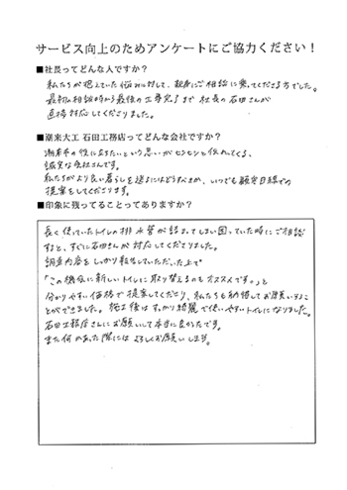 サービス向上のためアンケートにご協力ください！
■社長ってどんな人ですか？
私たちが抱えていた悩みに対して、親身にご相談に乗ってくださる方でした。
最初の相談時から最後の工事完了まで社長の石田さんが
直接対応してくださりました。
■潮来大工 石田工務店ってどんな会社ですか？
潮来市の役に立ちたいという思いがヒシヒシと伝わってくる、
誠実な会社さんです。
私たちがより良い暮らしを送るにはどうすべきか、いつでも顧客目線での
提案をしてくださります。
■印象に残ってることってありますか？
長く使っていたトイレの排水管が詰まってしまい困っていた時にご相談
すると、すぐに石田さんが対応してくださりました。
調査内容をしっかり報告していただいた上で
「この機会に新しいトイレに取り替えるのもオススメです。」と
分かりやすい価格で提案してくださり、私たちも納得してお願いすること
ができました。施工後はすっかり綺麗で使いやすいトイレになりました。
石田工務店さんにお願いして本当に良かったです。
また何かあった際にはよろしくお願いします。